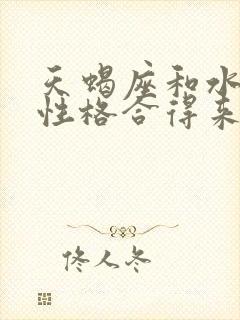 天蝎座和水
性格合得来
佟人冬